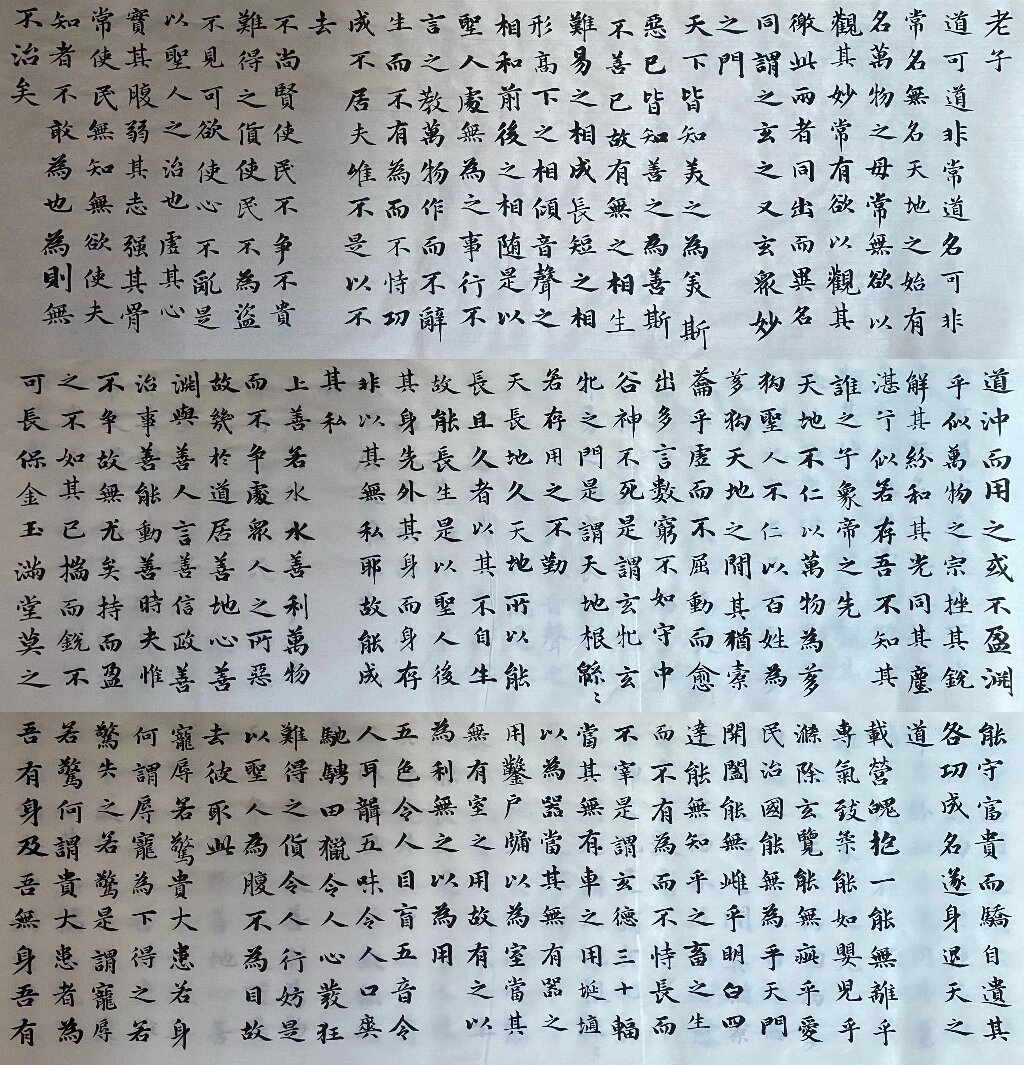 老子
道可道非常道名可非
常名無名天地之始有
名萬物之母常無欲以
觀其妙常有欲以觀其
徼此兩者同出而異名
同謂之玄之又玄衆妙
之門
天下皆知美之為美斯
惡已皆知善之為善斯
不善已故有無之相生
難易之相成長短之相
形高下之相傾音聲之
相和前後之相随是以
聖人處無為之事行不
言之教萬物作而不辭
生而不有為而不恃功
成不居夫唯不是以不
去
不尚賢使民不爭不貴
難得之貨使民不為盜
不見可欲使心不亂是
以聖人之治也虛其心
實其腹弱其志强其骨
常使民無知無欲使夫
知者不敢為也為則無
不治矣
道沖而用之或不盈淵
乎似萬物之宗挫其銳
解其紛和其光同其塵
湛兮似若存吾不知其
誰之子象帝之先
天地不仁以萬物為芻
狗聖人不仁以百姓為
芻狗天地之間其猶橐
籥乎虛而不屈動而愈
出多言數窮不如守中
谷神不死是謂玄牝玄
牝之門是謂天地根緜〻
若存用之不勤
天長地久天地所以能
長且久者以其不自生
故能長生是以聖人後
其身先外其身而身存
非以其無私耶故能成
其私
上善若水水善利萬物
而不爭處衆人之所惡
故幾於道居善地心善
淵與善人言善信政善
治事善能動善時夫惟
不爭故無尤矣持而盈
之不如其已揣而銳不
可長保金玉滿堂莫之
能守富貴而驕自遺其
咎功成名遂身退天之
道
載營魄抱一能無離乎
專氣致柔能如嬰兒乎
滌除玄覽能無疵乎愛
民治國能無為乎天門
開闔能無雌乎明白四
達能無知乎之畜之生
而不有為而不恃長而
不宰是謂玄德三十輻
當其無有車之用埏埴
以為器當其無有器之
用鑿戶牖以為室當其
無有室之用故有之以
為利無之以為用
五色令人目盲五音令
人耳聾五味令人口爽
馳騁田獵令人心發狂
難得之貨令人行妨是
以聖人為腹不為目故
去彼取此
寵辱若驚貴大患若身
何謂辱寵為下得之若
驚失之若驚是謂寵辱
若驚何謂貴大患者為
吾有身及吾無身吾有